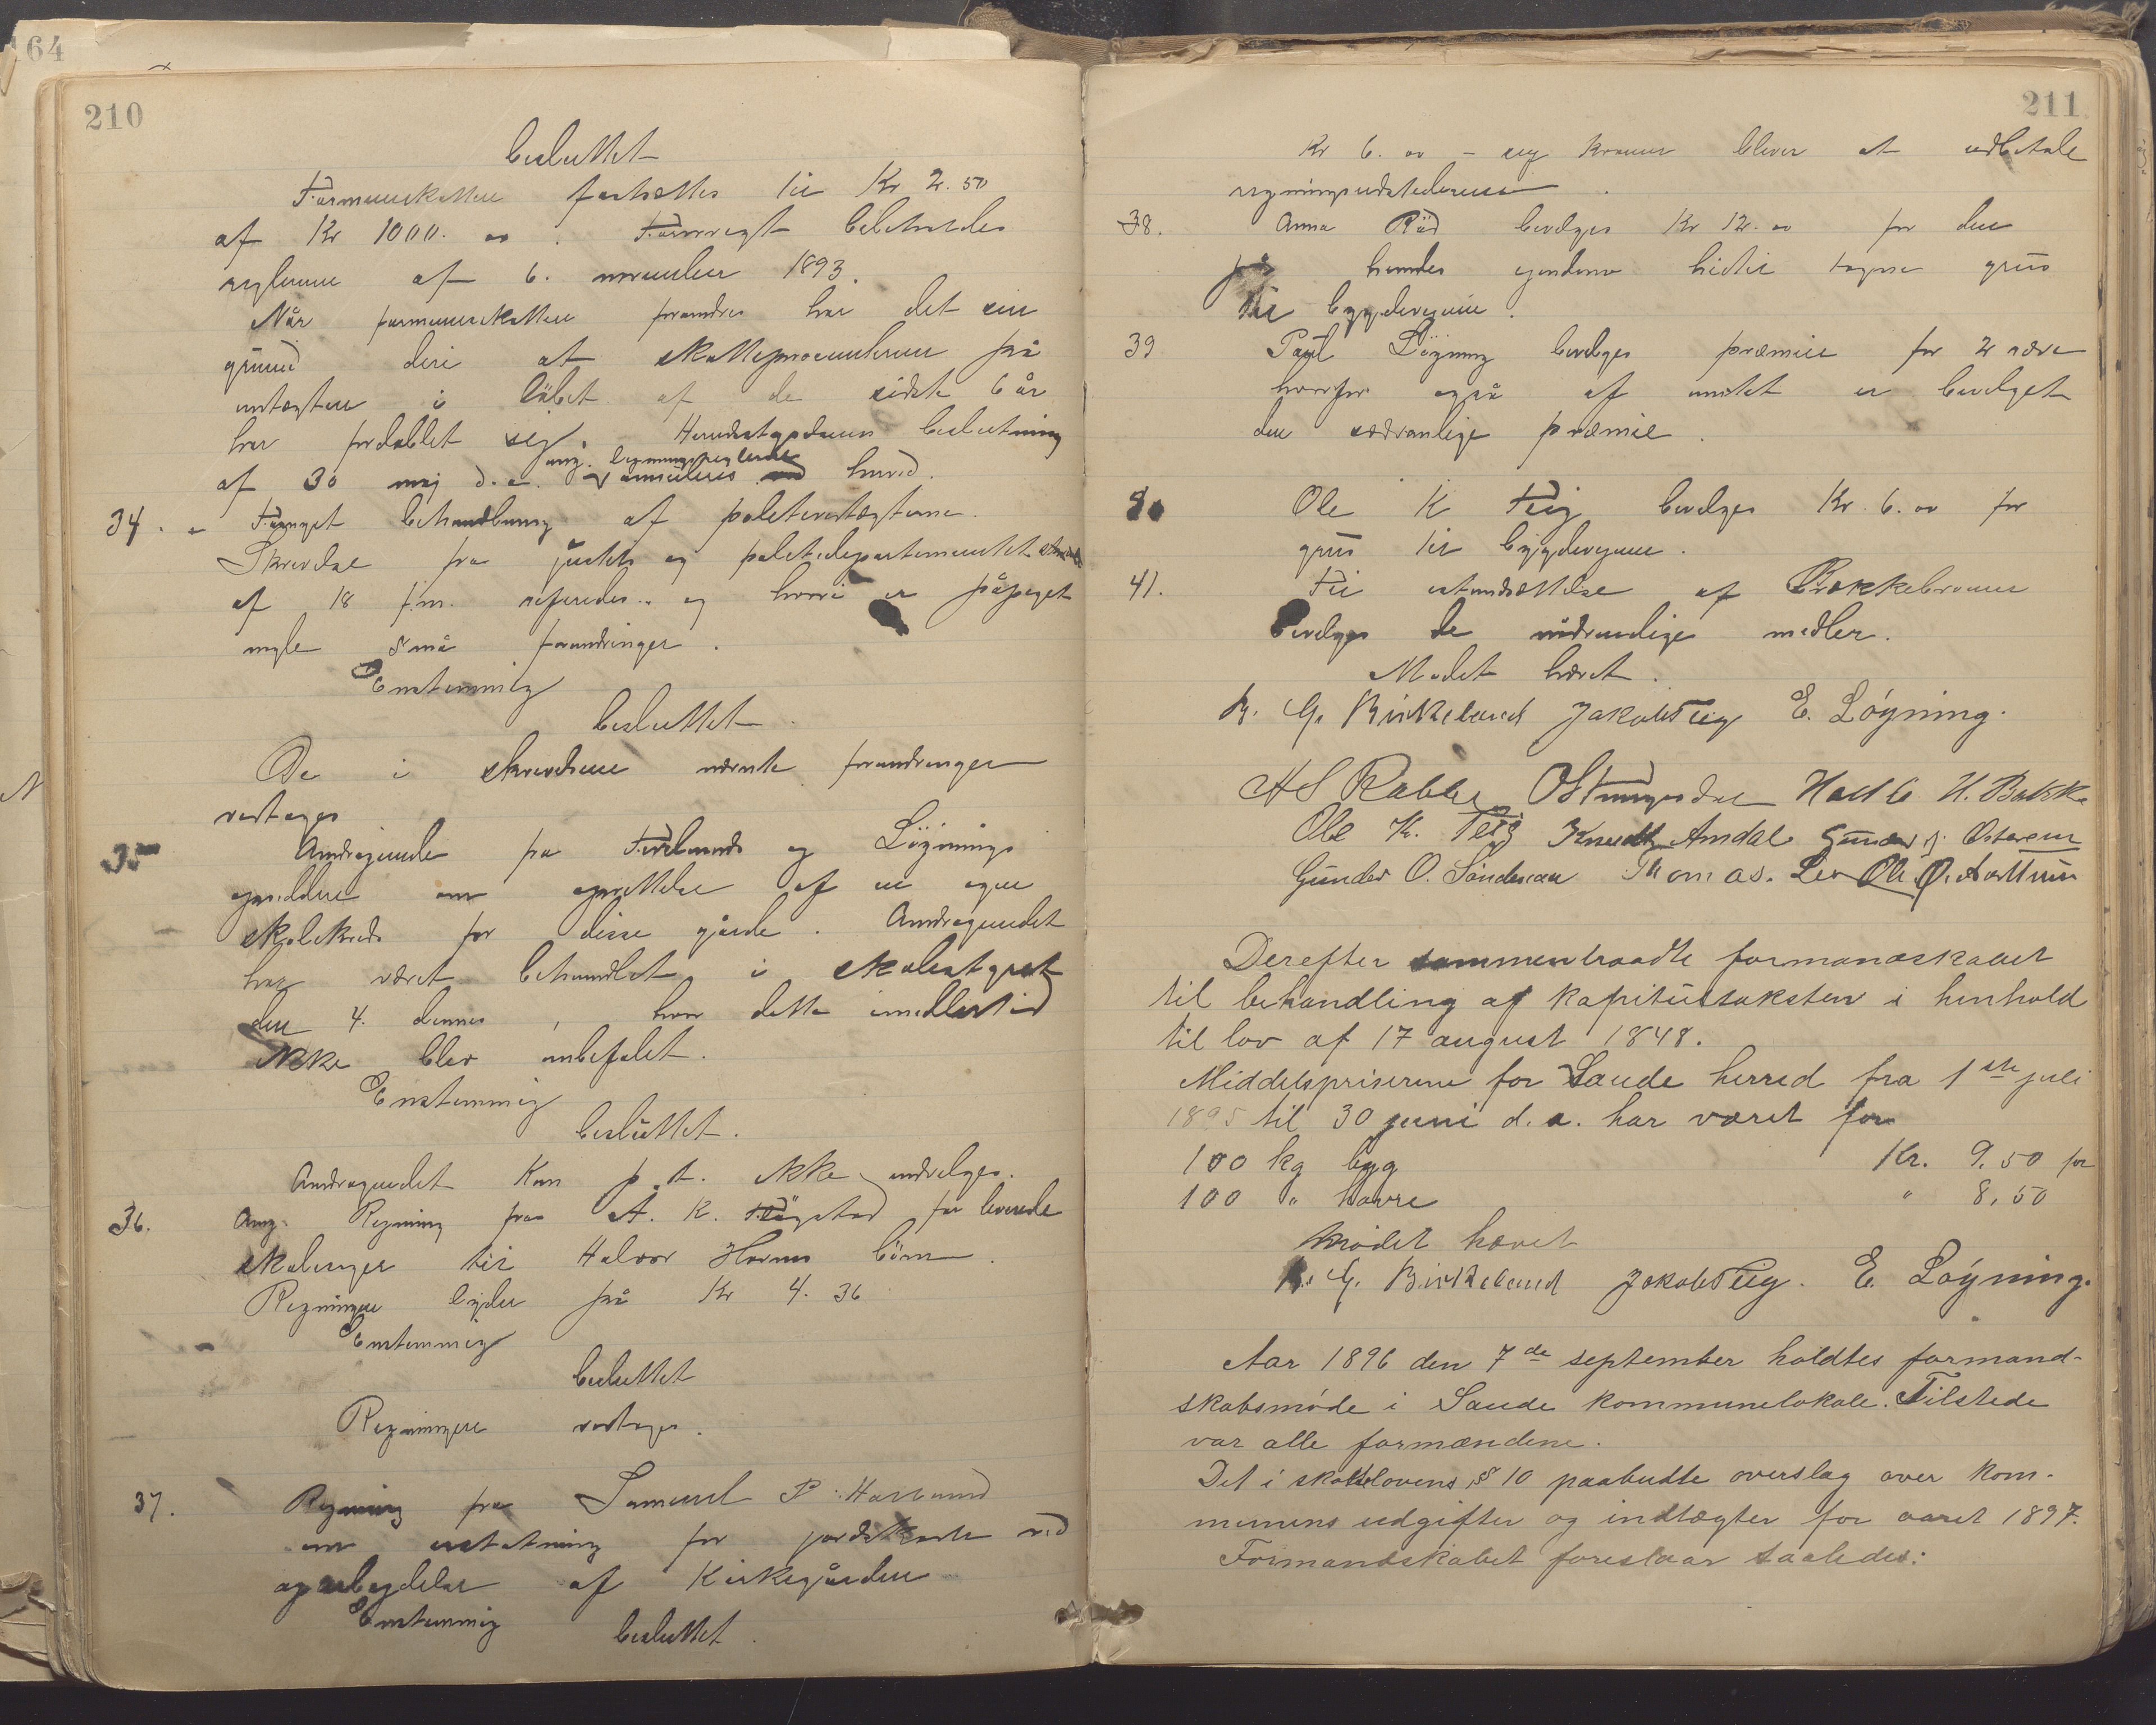 164
210
besluttet
Formueskatten fastsættes til Kr 2.50
af Kr 1000.00. Forøvrigt beholdes
reglerne af 6. november 1893.
Når formueskatten forandres har det sin
grund deri at skatteprocenterne på
indtægten i löbet af de sidste 6 år
har fordoblet sig. Herredsstyrelsens beslutning
ang. ligningsreglerne
af 30 maj d.a. annulleres herved.
34. Fornyet behandling af politivedtægterne.
Skrivelse fra justits og politidepartementet
af 18 f.m. referedes og hvori er påpeget
nogle små forandringer.
Enstemmig
besluttet
De i skrivelsene nævnte forandringer
vedtages
35 Andragende fra og Löynings
opsiddere om oprettelse af en egen
skolekreds for disse gårde. Andragendet
har været behandlet i skolestyret
den 4. dennes, hvor dette imidlertid
ikke blev anbefalet.
Enstemmig
besluttet.
Andragendet kan p.t. ikke indvilges.
36. Ang. Regning fra A. K. for leverede
skolesager til Halvor börn.
Regningen lyder på Kr 4.36
Enstemmig
besluttet
Regningen vedtages.
37. Regning fra Samuel P.
om erstatning for jordskade ved
oparbeidelse af Kirkegården
Enstemmig
besluttet.
211
Kr 6.00 – sex kroner bliver at udbetale
regningsudstederen.
38. Anna Röd bevilges Kr 12.00 for den
på hendes eiendom hidtil tagne grus
til bygdeveiene.
39 Paul Löyning bevilges præmie for 2 ræve
hvorfor også af amtet er bevilget
den sædvanlige præmie.
40 Ole K Feig bevilges Kr. 6.00 for
grus til bygdeveiene.
41. Til istandsættelse af Brækkebroen
bevilges de nödvendige midler.
Mödet hævet.
B. G. Birkeland Jakob Feig E. Löyning.
H S Rabbe O Stungsdal H. Bakka
Ole K. Feig Knudt Amdal Gunder J. Østerom
Gunder O. Sandsaa Thomas. Lev Ole Ø.
Derefter sammentraadte formandsskabet
til behandling af kapitulstaksten i henhold
til lov af 17 august 1848.
Middelspriserne for Saude herred fra 1ste juli
1895 til 30 juni d.a. har været for
100 kg byg Kr. 9.50 for
100 " havre " 8,50
Mödet hævet
B. G. Birkeland Jakob Feig. E. Löyning.
Aar 1896 den 7de september holdtes formand-
skabsmöde i Saude kommunelokale. Tilstede
var alle formændene.
Det i skattelovens § 10 paabudte overslag over kom-
munens udgifter og indtægter for aaret 1897.
Formandskabet foreslaar saaledes: